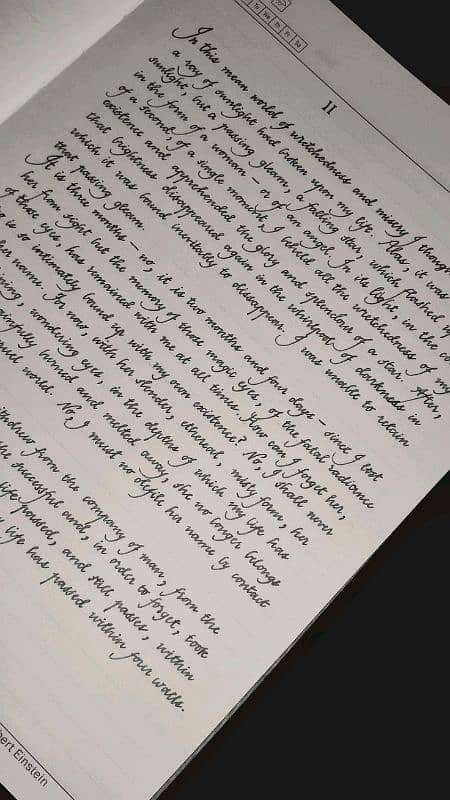 11
In this mean world of wretchedness and misery I thought
a ray of sunlight had broken upon my life. Alas, it was
sunlight, but a passing gleam, a falling star, which flashed
in the form of a woman – or of an angel. In its light, in the
of a second, of a single moment, I beheld all the wretchedness of my
existence and apprehended the glory and splendour of a star. After,
that brightness disappeared again in the whirlpool of darkness in
which it was bound inevitably to disappear. I was unable to retain
that passing gleam.
It is three months – no, it is two months and four days – since I lost
her from sight but the memory of those magic eyes, of the fatal radiance
of those eyes, has remained with me at all times. How can I forget her,
is so intimately bound up with my own existence? No, I shall never
her name. For now, with her slender, ethereal, misty form, her
wondering eyes, in the depths of which my life has
burned and melted away, she no longer belongs
world. No, I must not defile her name by contact
from the company of man, from the
successful and, in order to forget, took
life passed, and still passes, within
life has passed within four walls.
Einstein